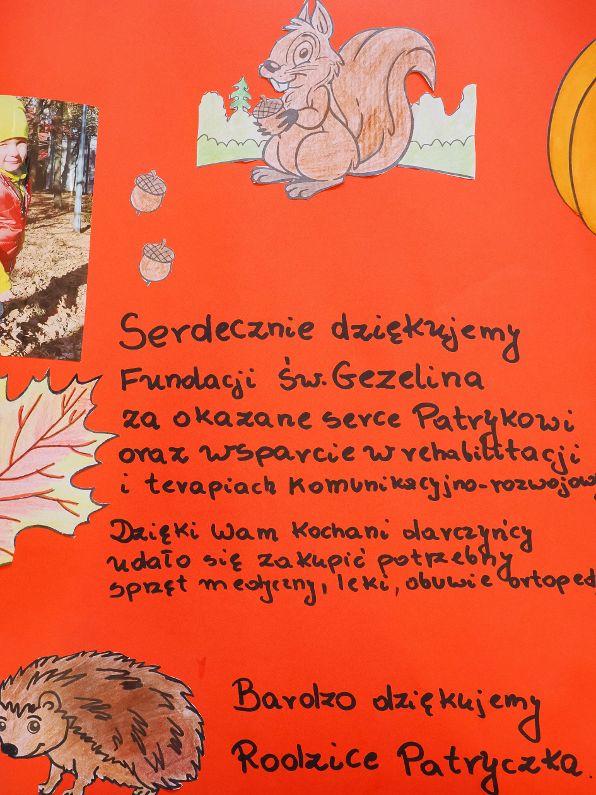 Serdecznie dziękujemy
Fundacji św. Gezelina
za okazane serce Patrykowi
oraz wsparcie w rehabilitacji
i terapiach komunikacyjno-rozwojowy
Dzięki Wam kochani darczyńcy
udało się zakupić potrzebny
sprzęt medyczny, leki, obuwie ortoped
Bardzo dziękujemy
Rodzice Patryczka.